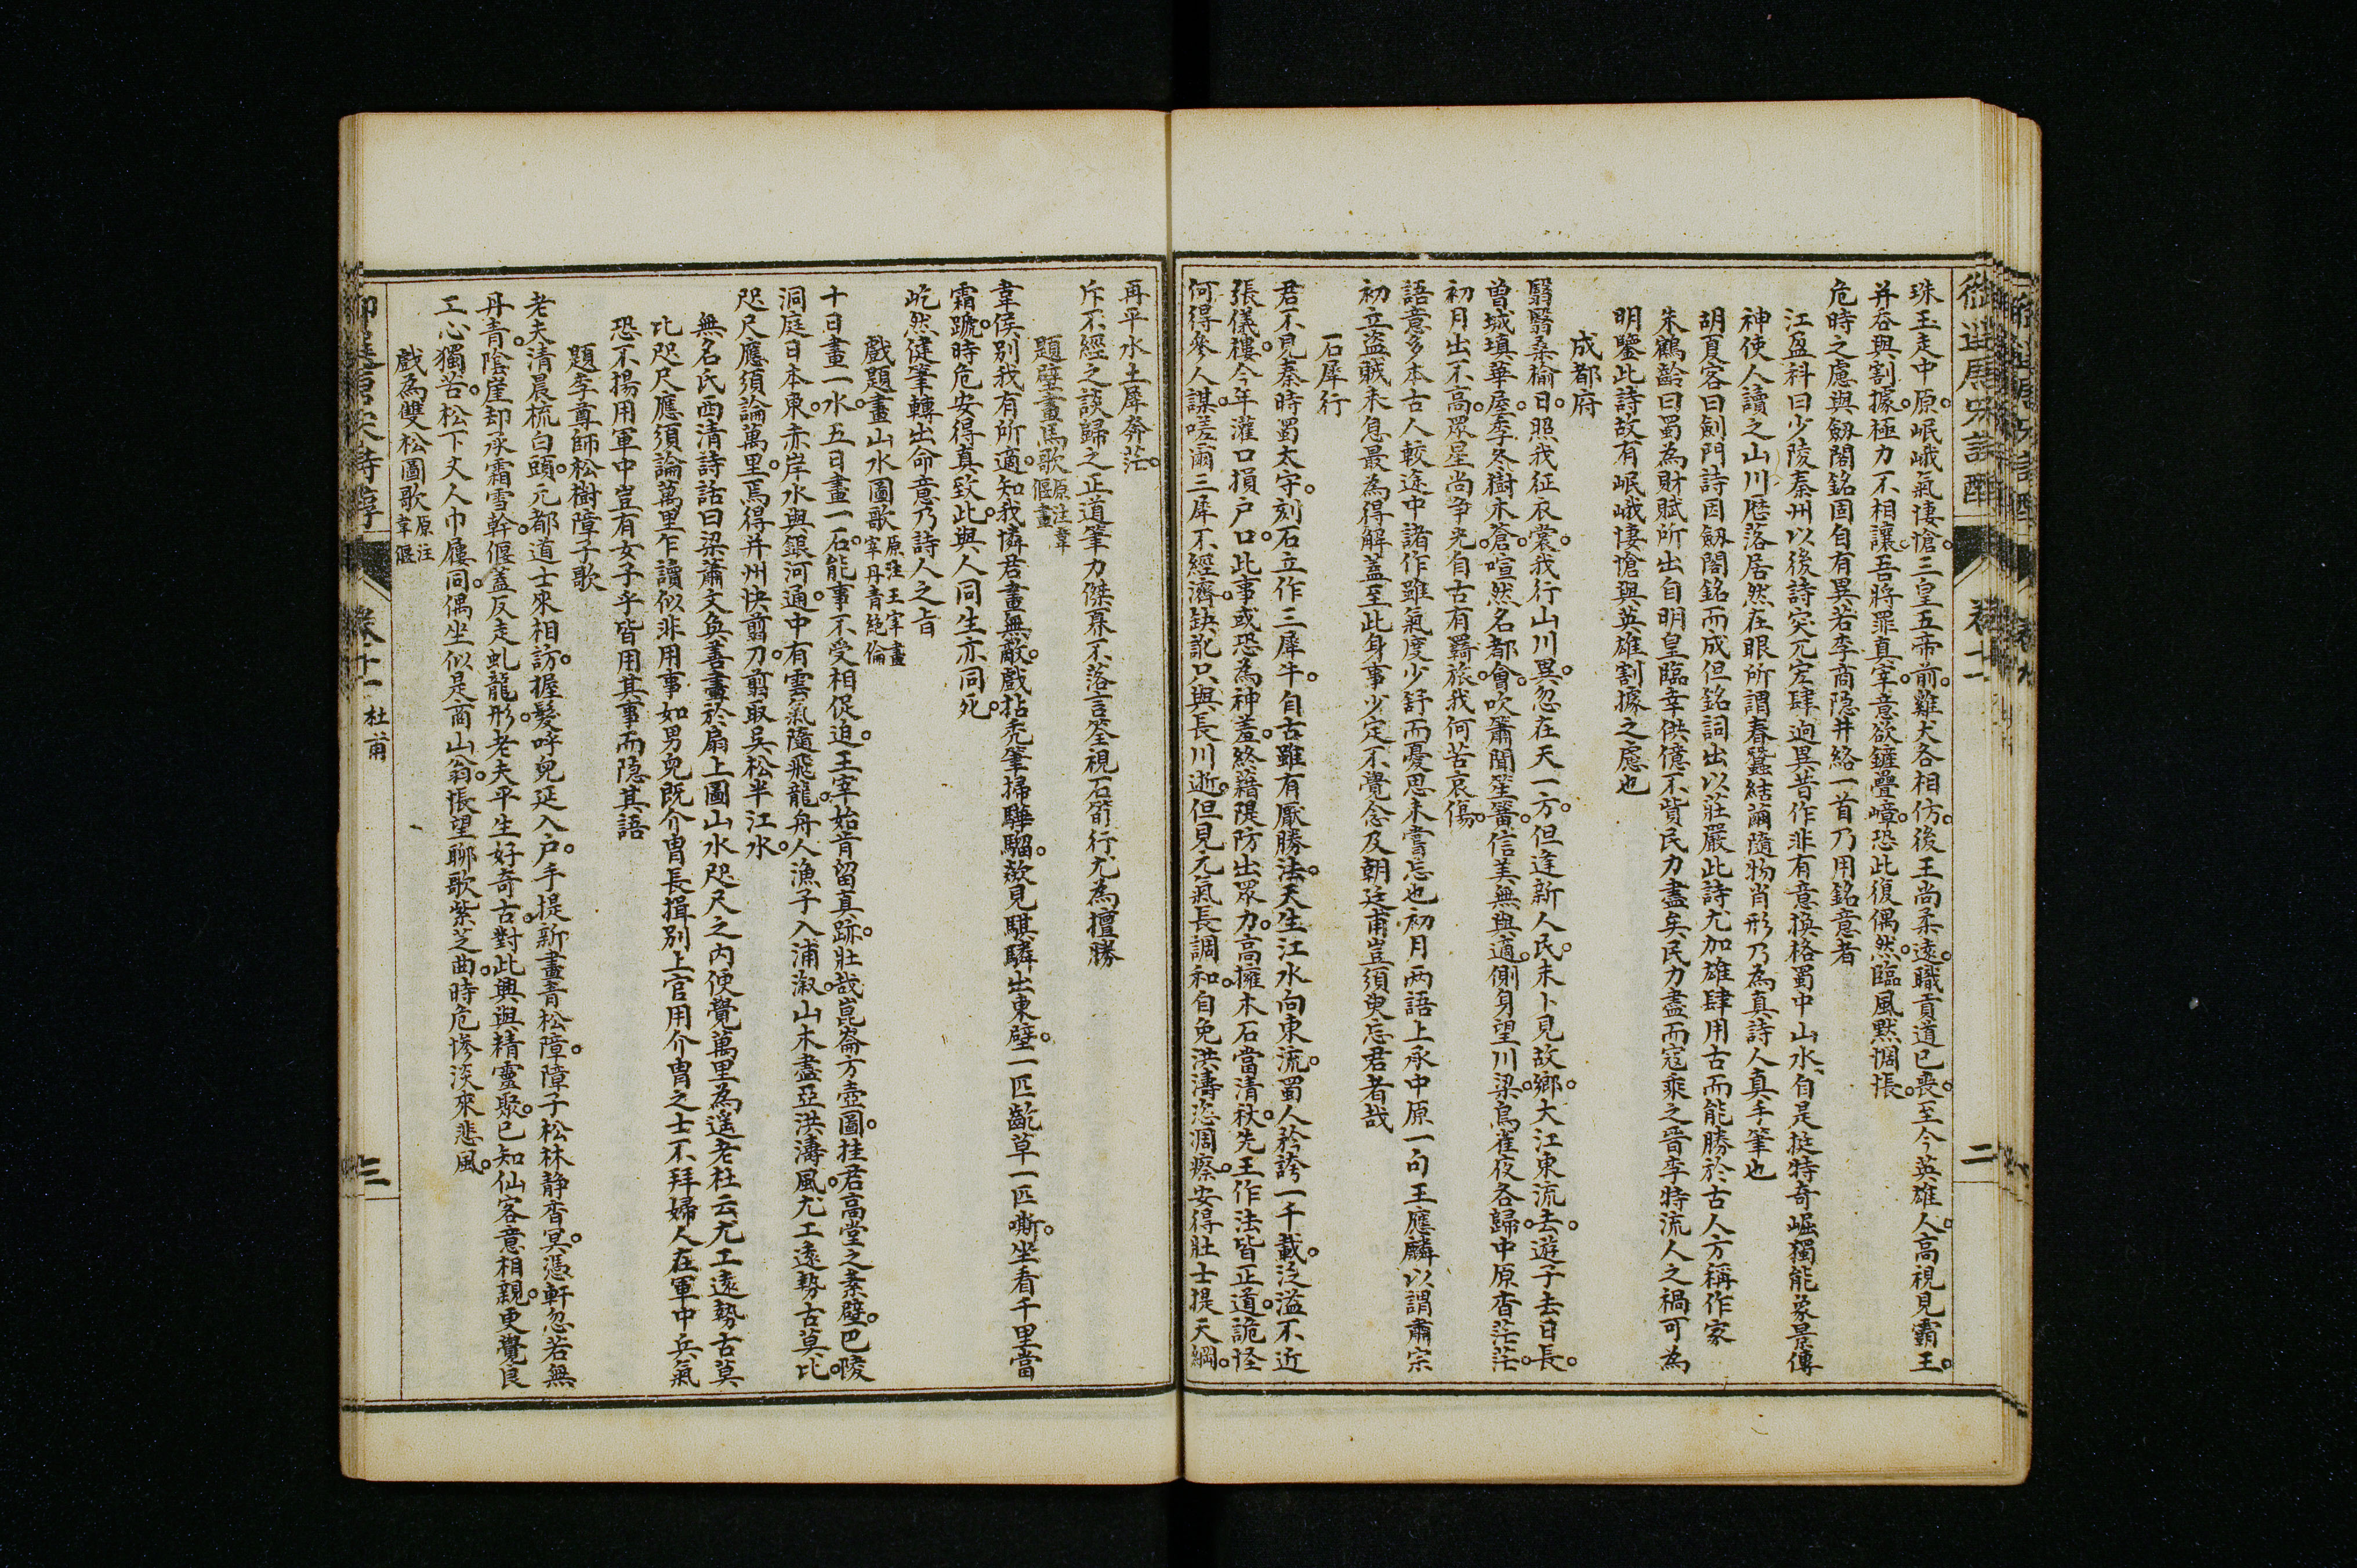 珠玉走中原。岷峨氣悽愴。三皇五帝前。雞犬各相仿。後王尚柔遠。職貢道已喪。至今英雄人。高視見霸王。
并吞與割據。極力不相讓。吾將罪真宰。意欲鏟疊嶂。恐此復偶然。臨風默惆悵。
危時之慮與劔閣銘固自有異若李商隐井絡一首乃用銘意者
江盈科曰少陵秦州以後詩突兀宏肆迥異昔作非有意換格蜀中山水自是挺特奇崛獨能象景傳
神使人讀之山川歷落居然在眼所謂春蠶結繭隨物肖形乃為真詩人真手筆也
胡夏客曰劍門詩因劔閣銘而成但銘詞出以莊嚴此詩尤加雄肆用古而能勝於古人方稱作家
朱鶴齡曰蜀為財賦所出自明皇臨幸供億不貲民力盡矣民力盡而寇乘之晉李特流人之禍可為
明鑒此詩故有岷峨悽愴與英雄割據之慮也
成都府
翳翳桑榆日。照我征衣裳。我行山川異。忽在天一方。但逢新人民。未卜見故鄉。大江東流去。遊子去日長。
曾城填華屋。季冬樹木蒼。喧然名都會。吹簫聞笙簧。信美無與適。側身望川梁。鳥雀夜各歸。中原杳茫茫。
初月出不高。眾星尚爭光。自古有羇旅。我何苦哀傷。
語意多本古人較途中諸作雖氣度少舒而憂思未嘗忘也初月兩語上承中原一句王應麟以謂肅宗
初立盜賊未息最為得解蓋至此身事少定不覺念及朝廷甫豈須臾忘君者哉
石犀行
君不見秦時蜀太守。刻石立作三犀牛。自古雖有厭勝法。天生江水向東流。蜀人矜誇一千載。泛溢不近
張儀樓。今年灌口損戶口。此事或恐為神羞。終藉隄防出眾力。高擁木石當清秋。先王作法皆正道。詭怪
何得參人謀。嗟爾三犀不經濟。缺訛只與長川逝。但見元氣長調和。自免洪濤恣凋瘵。安得壯士提天綱。
再平水土犀奔茫。
斥不經之談歸之正道筆力傑奡不落言筌視石筍行尤為擅勝
題壁畫馬歌 原注韋偃畫
韋侯別我有所適。知我憐君畫無敵。戲拈禿筆掃驊騮。歘見騏驎出東壁。一匹齕草一匹嘶。坐看千里當
霜蹄。時危安得真致此。與人同生亦同死。
屹然健筆轉出命意乃詩人之旨
戲題畫山水圖歌 原注王宰畫宰丹青絕倫
十日畫一水。五日畫一石。能事不受相促迫。王宰始肯留真跡。壯哉崑崙方壺圖。挂君高堂之素壁。巴陵
洞庭日本東。赤岸水與銀河通。中有雲氣隨飛龍。舟人漁子入浦溆。山木盡亞洪濤風。尤工遠勢古莫比。
咫尺應須論萬里。焉得并州快剪刀。剪取吳松半江水。
無名氏西清詩話曰梁蕭文奐善畫於扇上圖山水咫尺之內便覺萬里為遥老杜云尤工遠勢古莫
比咫尺應須論萬里乍讀似非用事如男兒既介胄長揖別上官用介胄之士不拜婦人在軍中兵氣
恐不揚用軍中豈有女子乎皆用其事而隐其語
題李尊師松樹障子歌
老夫清晨梳白頭。元都道士來相訪。握髮呼兒延入戶。手提新畫青松障。障子松林靜杳冥。憑軒忽若無
丹青。陰崖却承霜雪幹。偃蓋反走虬龍形。老夫平生好奇古。對此興與精靈聚。已知仙客意相親。更覺良
工心獨苦。松下丈人巾屨同。偶坐似是商山翁。悵望聊歌紫芝曲。時危慘淡來悲風。
戲為雙松圖歌 原注韋偃
卷十二 杜甫 三